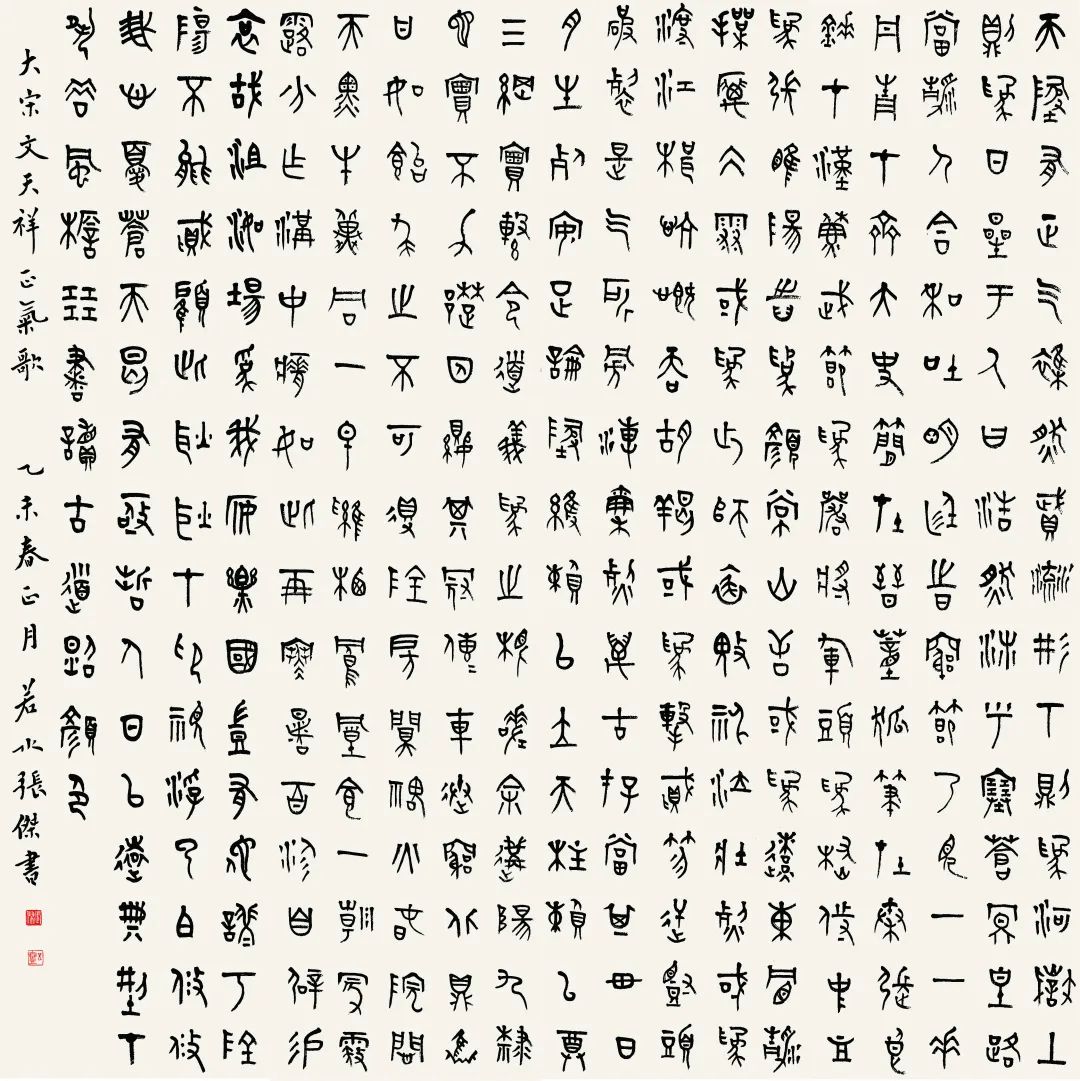 天地有正氣雜然賦流形下則為河嶽上
則為日星於人曰浩然沛乎塞蒼冥皇路
當清夷含和吐明庭時窮節乃見一一垂
丹青在齊太史簡在晉董狐筆在秦張良
椎在漢蘇武節為嚴將軍頭為嵇侍中血
為張睢陽齒為顏常山舌或為遼東帽清
操厲冰雪或為出師表鬼神泣壯烈或為
渡江楫慷慨吞胡羯或為擊賊笏逆豎頭
破裂是氣所磅礴凜烈萬古存當其貫日
月生死安足論地維賴以立天柱賴以尊
三綱實繫命道義為之根嗟余遘陽九隸
也實不力楚囚纓其冠傳車送窮北鼎鑊
甘如飴求之不可得陰房闃鬼火春院閟
天黑牛驥同一皂雞棲鳳凰食一朝蒙霧
露分作溝中瘠如此再寒暑百沴自辟易
哀哉沮洳場為我安樂國豈有他繆巧陰
陽不能賊顧此耿耿在仰視浮雲白悠悠
我心憂蒼天曷有極哲人日以遠典型在
夙昔風檐展書讀古道照顏色
大宋文天祥正氣歌 乙未春正月 若水張傑書